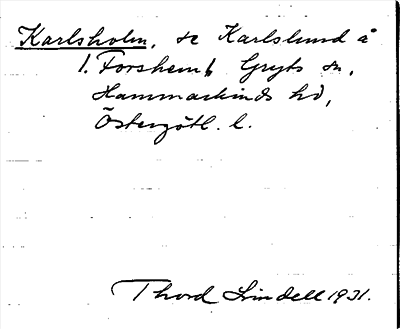 Karlsholm, se Karlslund å
1. Forshem, Gryts sn,
Hammarkinds hd,
Östergötl. l.
Thord Lindell 1931.